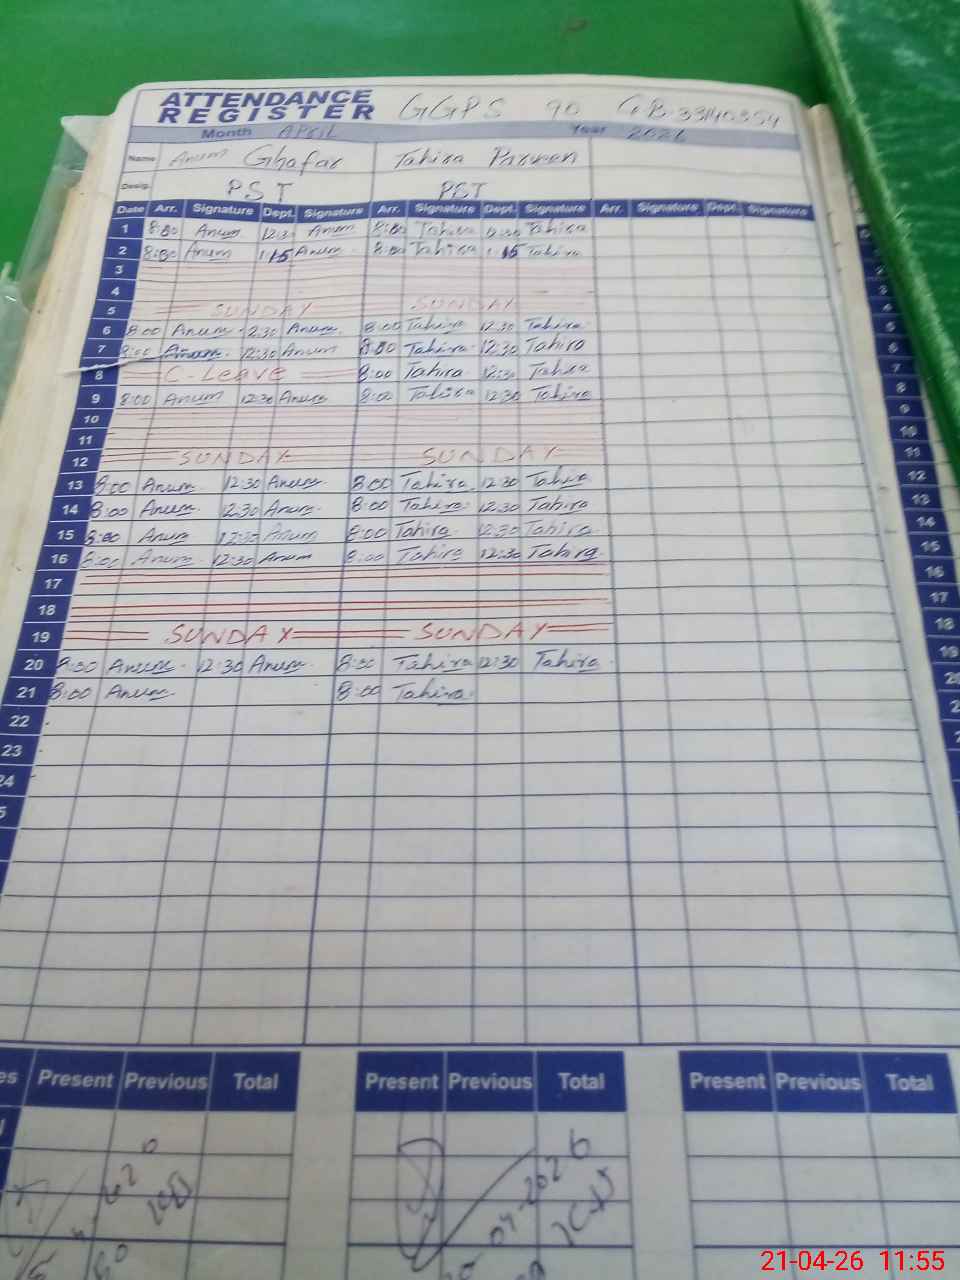 ATTENDANCE REGISTER GGPS 90 GB 33140354
Month APRIL Year 2026
Name Anum Ghafar Tahira Parveen
Desig. PST PST
Date Arr. Signature Dept. Signature Arr. Signature Dept. Signature Arr. Signature Dept. Signature
1 8:00 Anum 12:30 Anum 8:00 Tahira 12:30 Tahira
2 8:00 Anum 1:15 Anum 8:00 Tahira 1:15 Tahira
3
4
5 SUNDAY SUNDAY
6 8:00 Anum 12:30 Anum 8:00 Tahira 12:30 Tahira
7 8:00 Anum 12:30 Anum 8:00 Tahira 12:30 Tahira
8 C-Leave 8:00 Tahira 12:30 Tahira
9 8:00 Anum 12:30 Anum 8:00 Tahira 12:30 Tahira
10
11
12 SUNDAY SUNDAY
13 8:00 Anum 12:30 Anum 8:00 Tahira 12:30 Tahira
14 8:00 Anum 12:30 Anum 8:00 Tahira 12:30 Tahira
15 8:00 Anum 12:30 Anum 8:00 Tahira 12:30 Tahira
16 8:00 Anum 12:30 Anum 8:00 Tahira 12:30 Tahira
17
18
19 SUNDAY SUNDAY
20 8:30 Anum 12:30 Anum 8:30 Tahira 12:30 Tahira
21 8:00 Anum 8:00 Tahira
22
23
24
5
Present Previous Total Present Previous Total Present Previous Total
04-2026
21-04-26 11:55